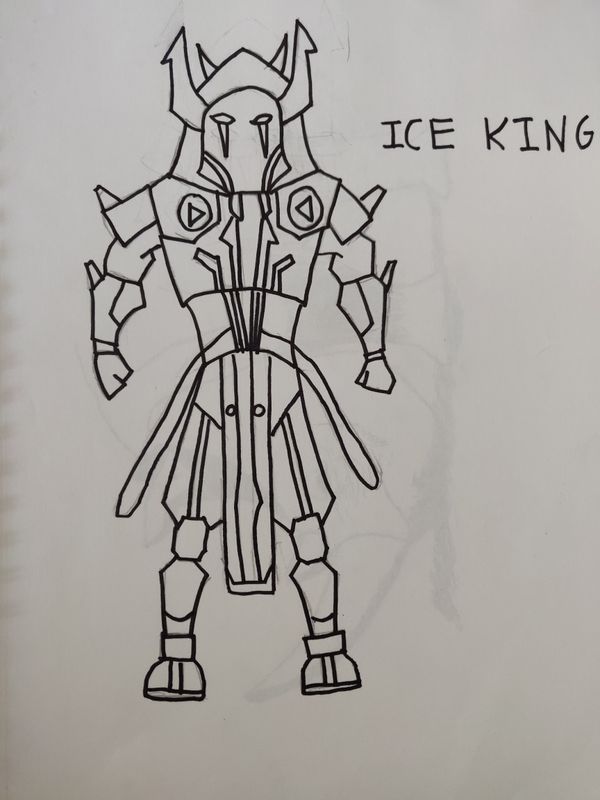 ICE KING